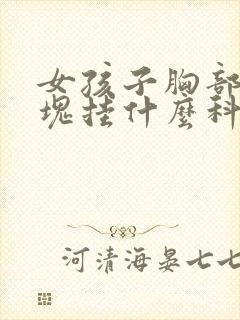 女孩子胸部
塊挂什麼科
河清海晏七七